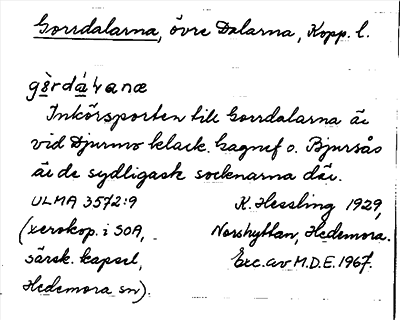 Gorrdalarna, övre Dalarna, Kopp. l.
gè̱rdá̱ɥanæ
Inkörsporten till Gorrdalarna är
vid Djurmo klack. Gagnef o. Bjursås
är de sydligask socknarna där.
ULMA 3572:9 K. Hessling 1929,
(xerokop. i SOA, Norshyttan, Hedemora.
särsk. kapsel, Exc. av M.D.E. 1967.
Hedemora sn).